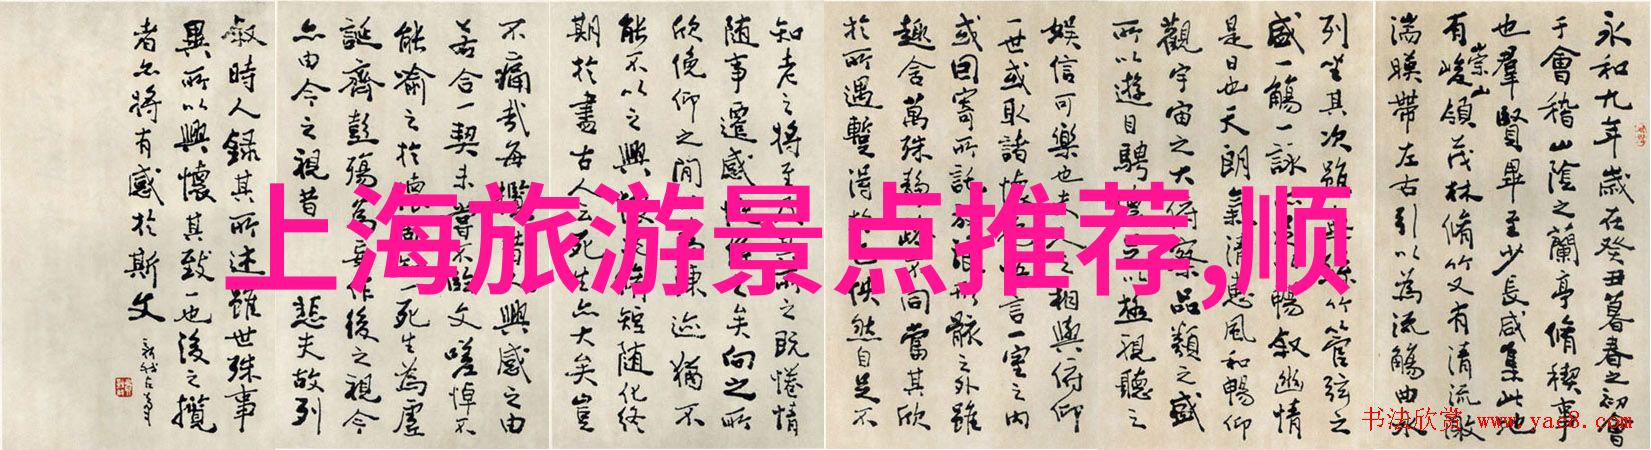 永和九年歲在癸丑暮春之初會
于會稽山陰之蘭亭脩稧事
也群賢畢至少長咸集此地
有崇山峻領茂林脩竹又有清流激
湍暎帶左右引以為流觴曲水
列坐其次雖無絲竹管弦之
盛一觴一詠亦足以暢敘幽情
是日也天朗氣清惠風和暢仰
觀宇宙之大俯察品類之盛
所以遊目騁懷足以極視聽之
娛信可樂也夫人之相與俯仰
一世或取諸懷抱悟言一室之內
或因寄所託放浪形骸之外雖
趣舍萬殊靜躁不同當其欣
於所遇暫得於己怏然自足不
知老之將至及其所之既惓情
隨事遷感慨係之矣向之所
欣俛仰之間以為陳迹猶不
能不以之興懷況脩短隨化終
期於盡古人云死生亦大矣豈
不痛哉每攬昔人興感之由
若合一契未嘗不臨文嗟悼不
能喻之於懷固知一死生為虛
誕齊彭殤為妄作後之視今
亦由今之視昔悲夫故列
敘時人錄其所述雖世殊事
異所以興懷其致一也後之攬
者亦將有感於斯文
上海旅游景点推荐,顺
书法欣赏 www.yac8.com